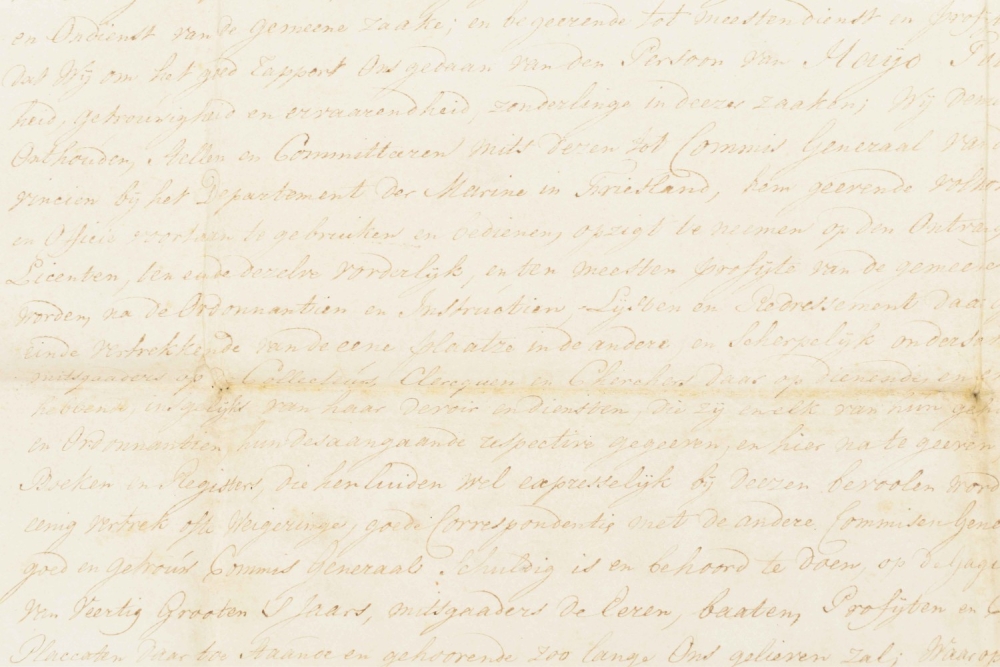 en Ondienst van de gemeene zaake; en begeerende tot meesten dienst en profi
dat Wij om het goed rapport Ons gedaan van den Persoon van
heid, getrouwigheid en ervaarendheid, zonderlinge in deezes zaaken; Wij
Onthouden, Stellen en Committeeren mits dezen tot Commis Generaal van
vincien bij het Departement der Marine in Friesland, hem geevende
en Officie voortaan te gebruiken en bedienen, opzigt te neemen op den
Licenten, ten einde dezelve vorderlijk, en ten meesten profijte van de gemeene
worden, na de Ordonnantien en Instructien Lijsten en Redressement daar
einde vertrekkende van de eene plaatze in de andere, en scherpelijk
mitsgaaders op Collecteurs, Clercquen en Cherchers daar op dienende en
hebbende, insgelijks van haar devoir en diensten, die zij en elk van hun
en Ordonnantien hun desaangaande respective gegeeven, en hier na te geeven
Boeken en Registers, die henluiden wel expresselijk bij deezen bevoolen word
eenig vertrek ofte Weigeringe, goede Correspondentie met de andere Commisen Gene
goed en getrouw Commis Generaals Schuldig is en behoord te doen, op de Gage
van Veertig Grooten 'S Jaars, mitsgaaders de Eeren, baaten, Profijten en
Placcaten daar toe staande en gehoorende zoo lange Ons gelieven zal;